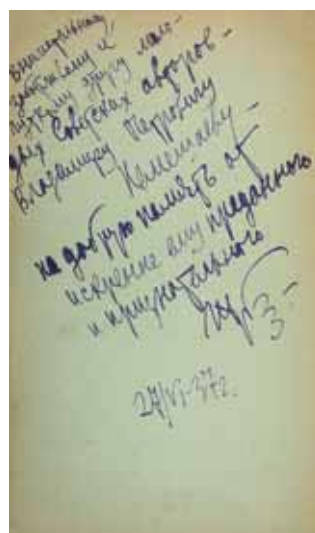 Внимательному,
заботливому и
чуткому другу моло-
дых Советских авторов -
Владимиру Петровичу
на добрую память от
искренне ему преданного
и признательного
27/VI-37г.